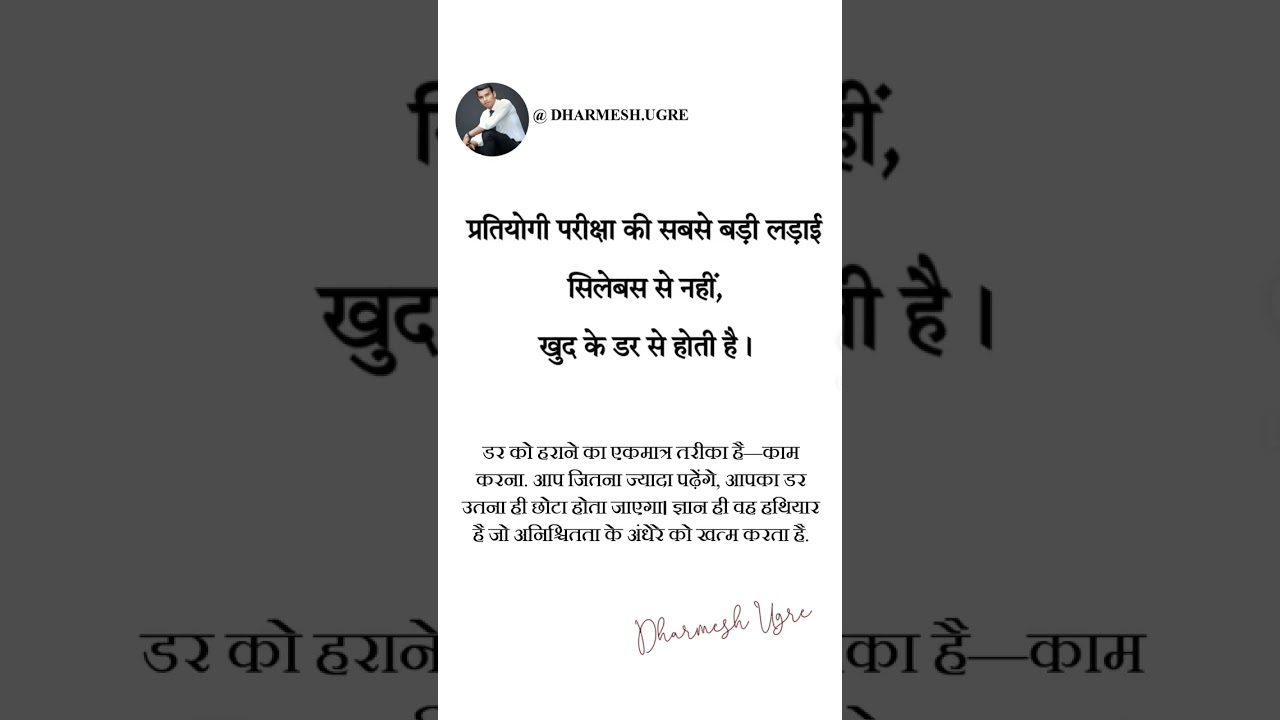 @ DHARMESH.UGRE
प्रतियोगी परीक्षा की सबसे बड़ी लड़ाई
सिलेबस से नहीं,
खुद के डर से होती है।
डर को हराने का एकमात्र तरीका है—काम
करना. आप जितना ज्यादा पढ़ेंगे, आपका डर
उतना ही छोटा होता जाएगा। ज्ञान ही वह हथियार
है जो अनिश्चितता के अंधेरे को खत्म करता है.
Dharmesh Ugre